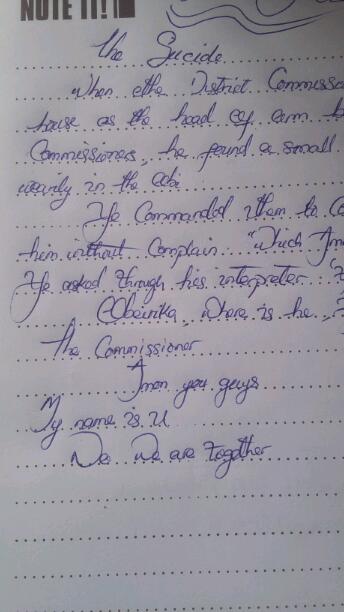 NOTE IT!
The Sucide
When the District Commisso
house as the head of arm
Commissioners, he found a small
wearily in the obi
He Commanded them to Co
him without Complain. "Which Amo
He asked through his interpreter
Obeirika, where is he
The Commissioner
Jmon you guys
My name is U
We We are together